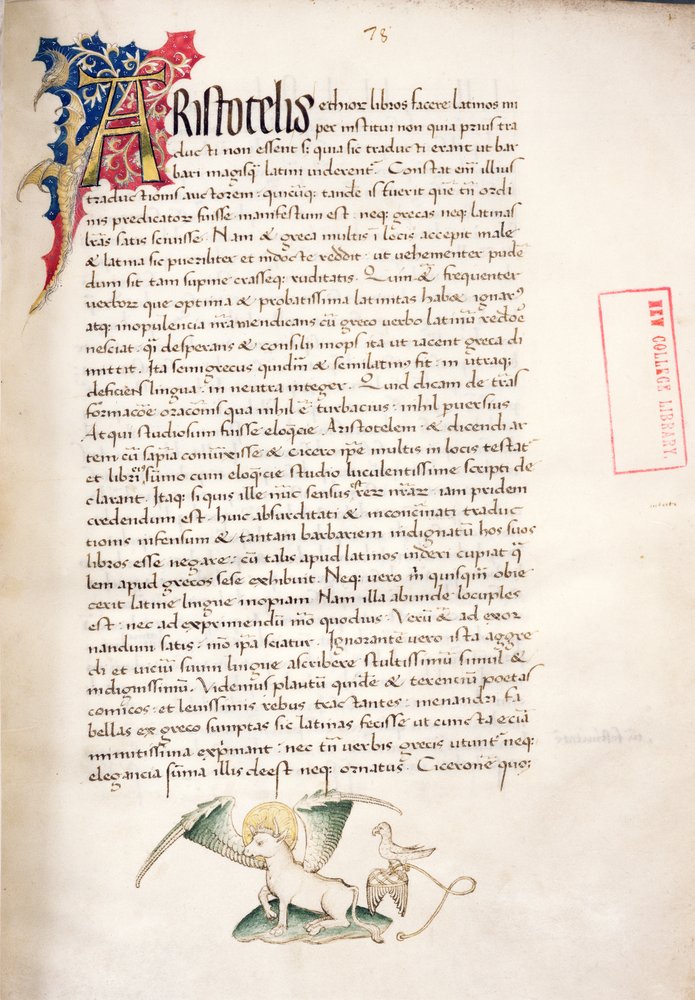 78
ARIstotelis ethicor libros facere latinos nu
per institui non quia prius tra
ducti non essent si quia sic traducti erant ut bar
bari magisq latini viderent. Constat em illius
traductionis auctorem quicuq tande is fuerit que tn ordi
nis predicator fuisse manifestum est neq grecas neq latinas
lras satis scivisse. Nam & greca multis i locis accepit male
& latina sic pueriliter et indocte reddit ut vehementer pude
dum sit tam supine crasseq ruditatis. Quin & frequenter
verborz que optima & probatissima latinitas habet ignarus
atq inopulencia nra mendicans cu greco verbo latinu reddere
nesciat qi desperans & consilii inops ita ut iacent greca di
mittit. Ita semigrecus quidm & semilatinus fit in utraq
deficiens lingua in neutra integer. Quid dicam de tras
formacoe oracois qua nihil e turbacius nihil pversius
Atqui studiosum fuisse eloqcie Aristotelem & dicendi ar
tem cu sapia coniuxisse & cicero ipe multis in locis testat
et libri sumo cum eloqcie studio luculentissime scripti de
clarant. Itaq si quis ille nuc sensus est rerz nrarz iam pridem
credendum est huic absurditati & inconcinati traduc
tionis infensum & tantam barbariem indignatu hos suos
libros esse negare cu talis apud latinos videri cupiat q
lem apud grecos sese exhibuit. Neq vero m quisqm obie
cerit latine lingue inopiam Nam illa abunde locuples
est nec ad exprimendu mo quodius Veru & ad exor
nandum satis mo ipa sciatur. Ignorante vero ista aggre
di et viciu suum lingue ascribere stultissimu simul &
indignissimu. Videmus plautu quide & terenciu poetas
comicos et levissimis rebus tractantes menandri fa
bellas ex greco sumptas sic latinas fecisse ut cuncta eciā
minutissima exprimant nec tn verbis grecis utunt neq
elegancia suma illis deest neq ornatus. Cicerone quoq
NEW COLLEGE LIBRARY.